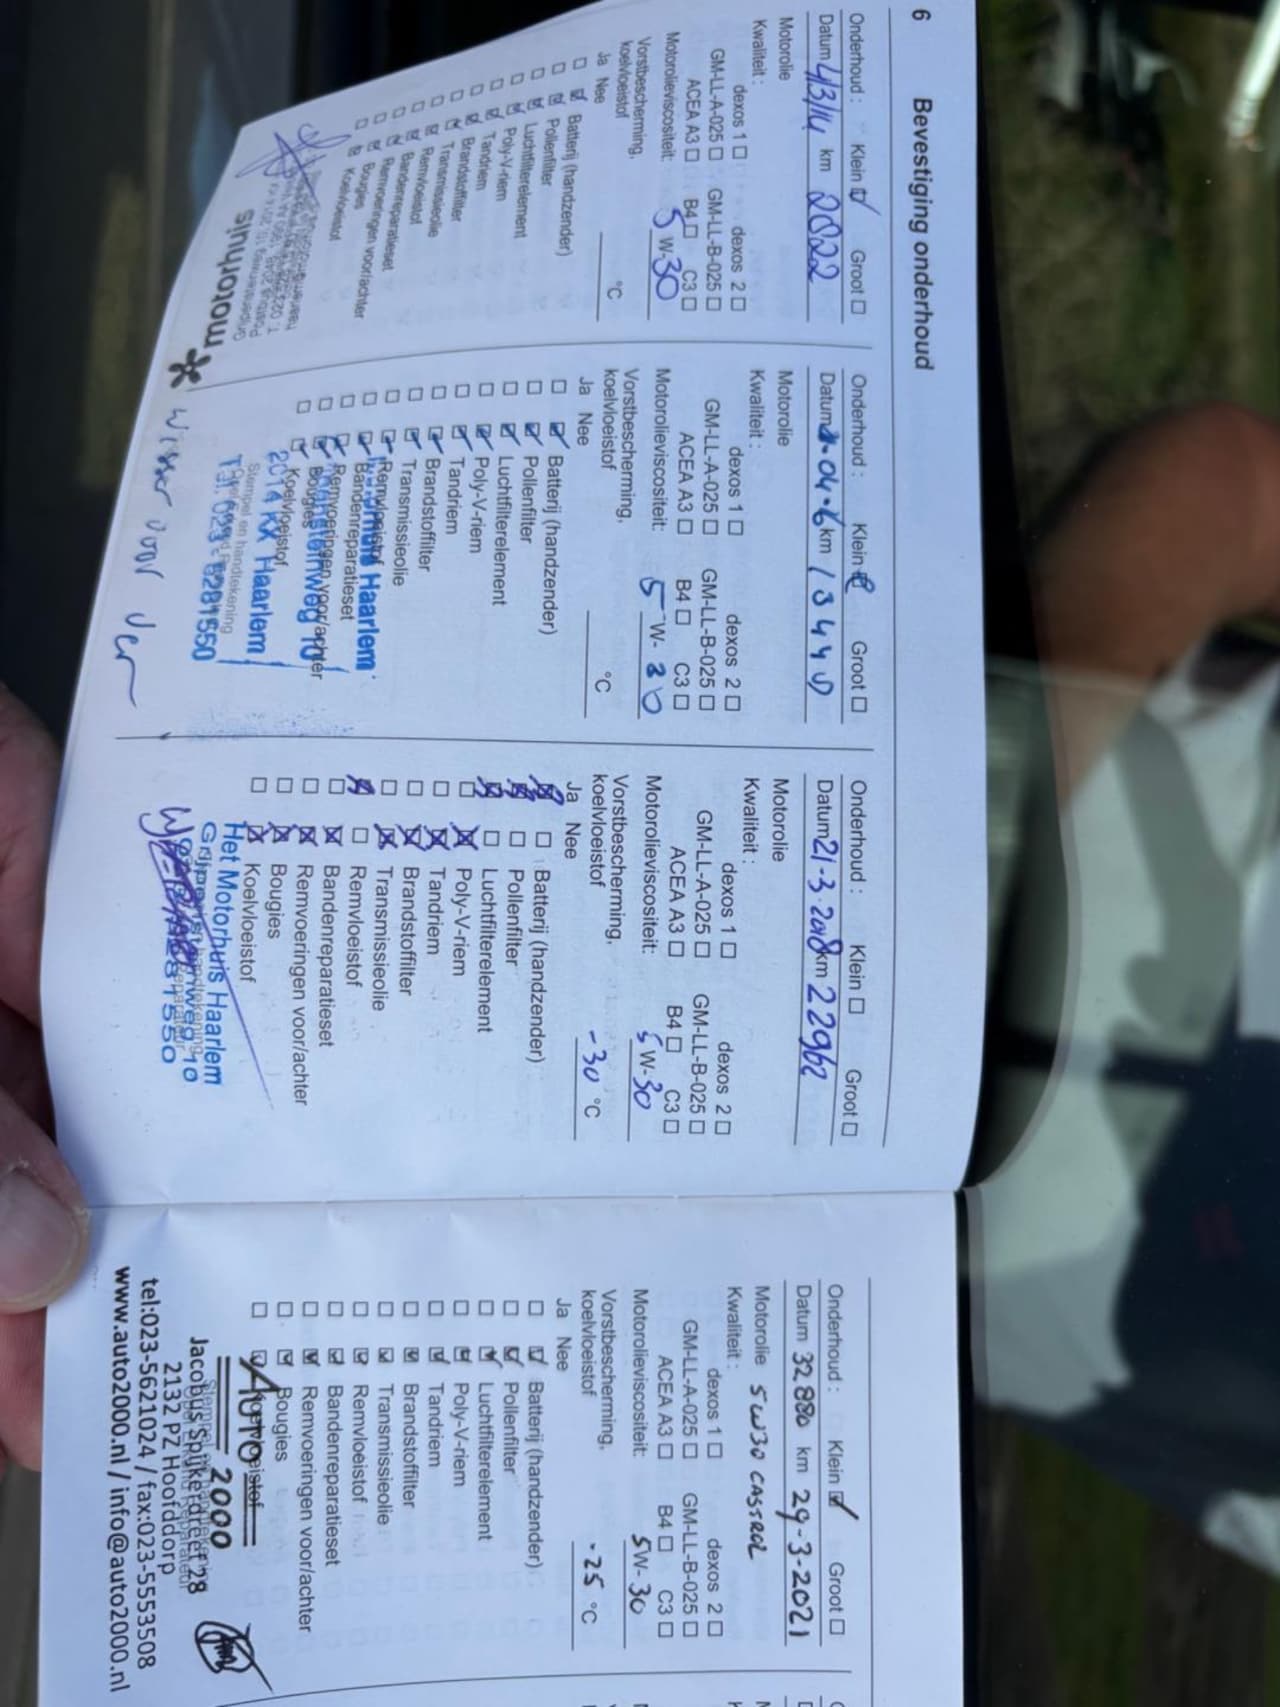 6 Bevestiging onderhoud
Onderhoud : Klein Groot
Datum 4/3/14 km 2022
Motorolie
Kwaliteit :
dexos 1 dexos 2
GM-LL-A-025 GM-LL-B-025
ACEA A3 B4 C3
Motorolieviscositeit: 5 W-30
Vorstbescherming,
koelvloeistof °C
Ja Nee
Batterij (handzender)
Pollenfilter
Luchtfilterelement
Poly-V-riem
Tandriem
Brandstoffilter
Transmissieolie
Remvloeistof
Bandenreparatieset
Remvoeringen voor/achter
Bougies
Koelvloeistof
motorhuis
Onderhoud : Klein Groot
km 13449
Motorolie
Kwaliteit :
dexos 1 dexos 2
GM-LL-A-025 GM-LL-B-025
ACEA A3 B4 C3
Motorolieviscositeit: 5 W-30
Vorstbescherming,
koelvloeistof °C
Ja Nee
Batterij (handzender)
Pollenfilter
Luchtfilterelement
Poly-V-riem
Tandriem
Brandstoffilter
Transmissieolie
Remvloeistof
Bandenreparatieset
Remvoeringen voor/achter
Bougies
Koelvloeistof
Haarlem
2014 KX Haarlem
Stempel en handtekening
Tel. 023-5281550
voor
Onderhoud : Klein Groot
Datum 21-3-2018 km 22962
Motorolie
Kwaliteit :
dexos 1 dexos 2
GM-LL-A-025 GM-LL-B-025
ACEA A3 B4 C3
Motorolieviscositeit: 5 W-30
Vorstbescherming,
koelvloeistof -30 °C
Ja Nee
Batterij (handzender)
Pollenfilter
Luchtfilterelement
Poly-V-riem
Tandriem
Brandstoffilter
Transmissieolie
Remvloeistof
Bandenreparatieset
Remvoeringen voor/achter
Bougies
Koelvloeistof
Het Motorhuis Haarlem
Onderhoud : Klein Groot
Datum 32880 km 29-3-2021
Motorolie 5W30 CASTROL
Kwaliteit :
dexos 1 dexos 2
GM-LL-A-025 GM-LL-B-025
ACEA A3 B4 C3
Motorolieviscositeit: 5W-30
Vorstbescherming,
koelvloeistof -25 °C
Ja Nee
Batterij (handzender)
Pollenfilter
Luchtfilterelement
Poly-V-riem
Tandriem
Brandstoffilter
Transmissieolie
Remvloeistof
Bandenreparatieset
Remvoeringen voor/achter
Bougies
Koelvloeistof
AUTO 2000
Jacobus Spijkerdreef 28
2132 PZ Hoofddorp
tel:023-5621024 / fax:023-5553508
www.auto2000.nl / info@auto2000.nl